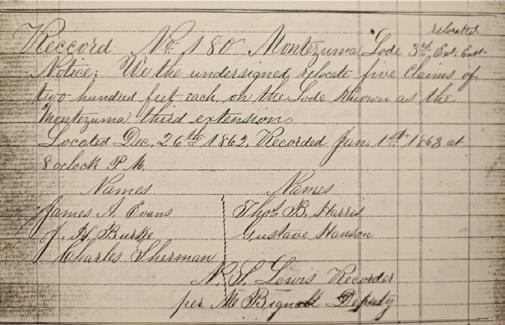 relocated
Reccord No 180 Montezuma Lode 3rd Ext. East
Notice: We the undersigned relocate five Claims of
two hundred feet each, on the Lode Known as the
Montezuma third extension
Located Dec. 26th 1862. Recorded Jan. 1st 1863 at
8 oclock P M.
Names Names
James A. Evans Thos B. Harris
J. H. Burke Gustave Hanson
Charles Sherman
N. S. Lewis Recorder
per M Bignall Deputy